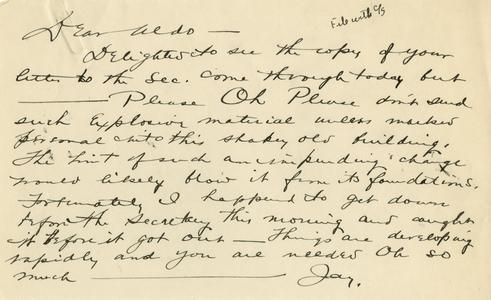 File with C/S
Dear Aldo —
Delighted to see the copy of your
letter to the Sec. come through today but
— Please Oh Please don't send
such explosive material unless marked
personal into this shakey old building.
The hint of such an impending change
would likely blow it from its foundations.
Fortunately I happend to get down
before the Secretary this morning and caught
it before it got out — Things are developing
rapidly and you are needed Oh so
much — Jay.